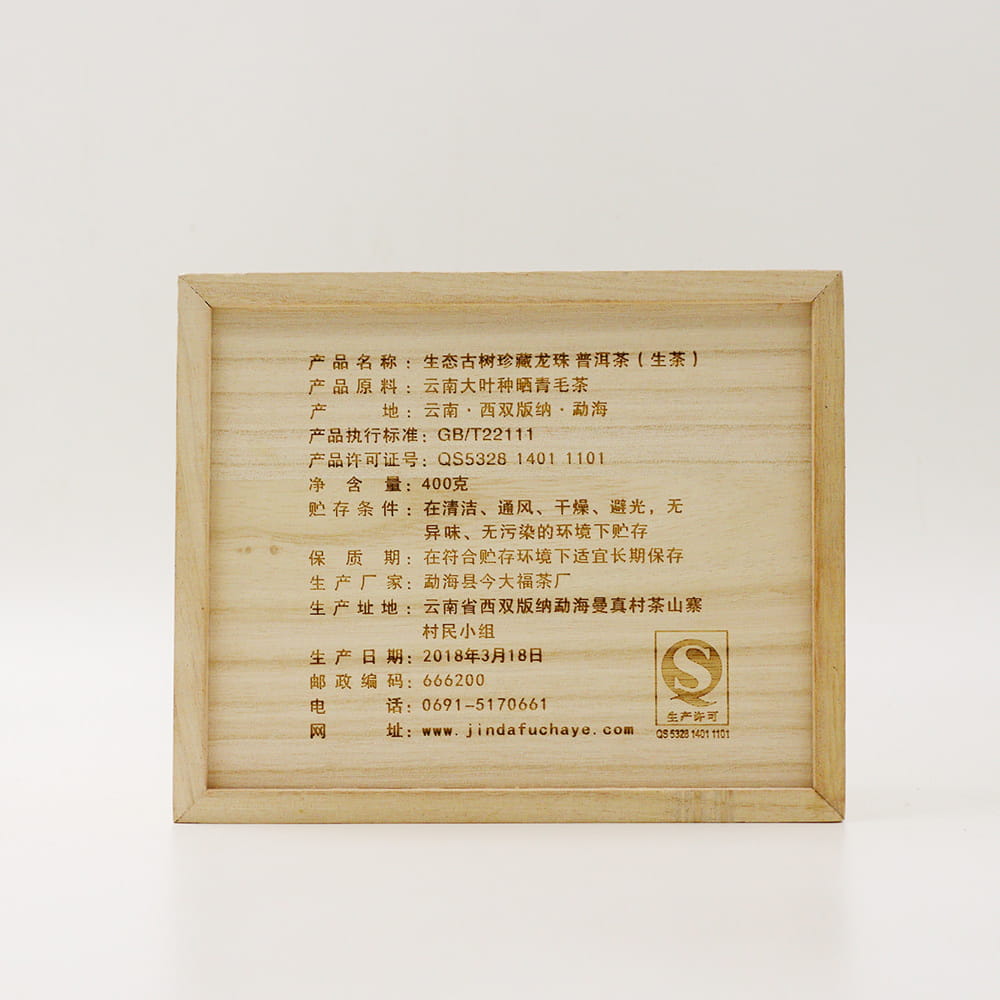 产品名称：生态古树珍藏龙珠 普洱茶（生茶）
产品原料：云南大叶种晒青毛茶
产地：云南·西双版纳·勐海
产品执行标准：GB/T22111
产品许可证号：QS5328 1401 1101
净含量：400克
贮存条件：在清洁、通风、干燥、避光，无
异味、无污染的环境下贮存
保质期：在符合贮存环境下适宜长期保存
生产厂家：勐海县今大福茶厂
生产址地：云南省西双版纳勐海曼真村茶山寨
村民小组
生产日期：2018年3月18日
邮政编码：666200
电话：0691-5170661
网址：www.jindafuchaye.com
S
生产许可
QS 5328 1401 1101